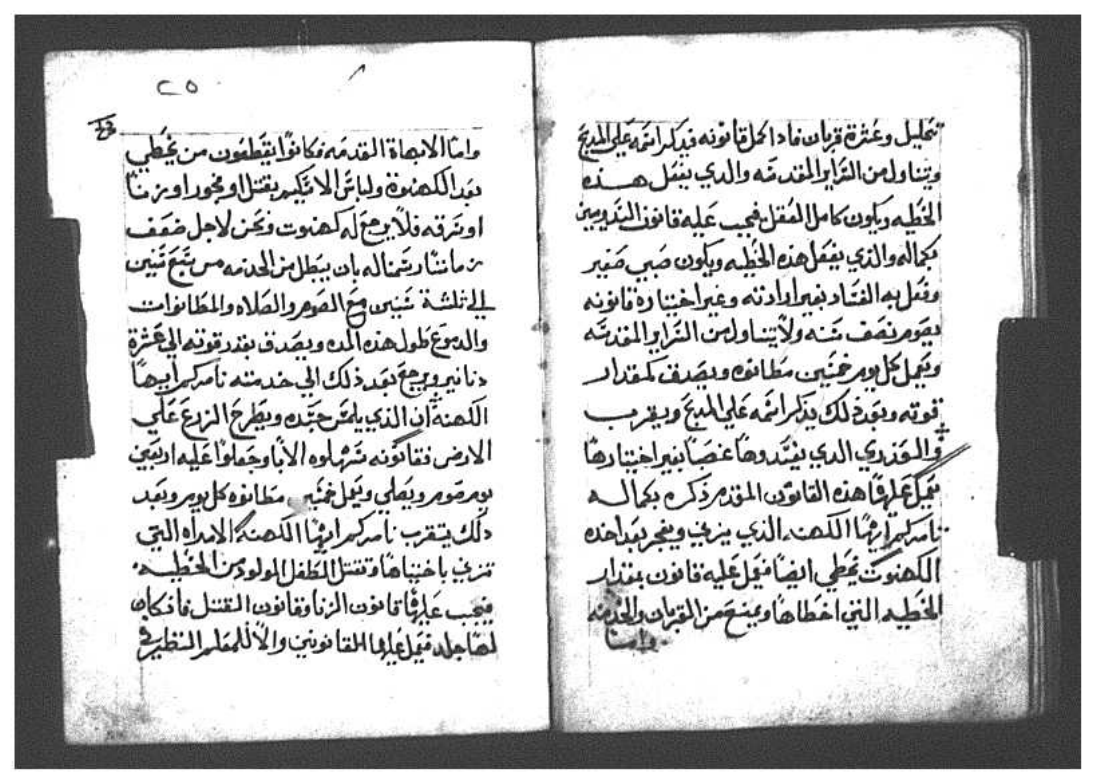 تحليل وعشرة قربان فاذا اكمل قانونه فيدكر اسمه علي المدبح
ويتناول من السراير المقدسه والدي يفعل هذه
الخطيه ويكون كامل العقل فيجب عليه قانون
بكماله والذي يفعل هذه الخطيه ويكون صبي صغير
وفعل به الفساد بغير ارادته وغير اختياره قانونه
يصوم نصف سنه ولا يتناول من السراير المقدسه
ويعمل كل يوم خمسين مطانوه ويصدف كمقدار
قوته وبعد ذلك يذكر اسمه علي المدبح ويقرب
والدي يفسدوها غصباً بغير اختيارها
يعمل عليها هذه القانون المقدم ذكره بكماله
نامركم ايها الكهنه الذي يزني ويفجر بعد اخده
الكهنوت يخطي ايضاً فيعمل عليه قانون بمقدار
الخطيه التي اخطاها ويمنع من القربان والخدمه
واما
٢٥
واما الابهاة القدمه فكانوا يقطعون من يخطي
بعد الكهنوة ولباس الاسكيم بقتل او فجور او زنا
او سرقه فلا يرجع له كهنوت ونحن لاجل ضعف
زماننا رسمنا له بان يبطل من الخدمه من سبع سنين
الي ثلثة سنين مع الصوم والصلاه والمطانوات
والدموع طول هذه المده ويصدف بقدر قوته الي عشرة
دنانير ويرجع بعد ذلك الي خدمته نامركم ايها
الكهنه ان الذي يلمس جسده ويطرح الزرع علي
الارض فقانونه سهلوه الابا وجعلوا عليه اربعين
يوم صوم ويصلي ويعمل خمسين مطانوه كل يوم وبعد
دلك يتقرب نامركم ايها الكهنة الامراه التي
تزني باختيارها وتقتل الطفل المولود من الخطيه
فيجب عليها قانون الزنا وقانون القتل فان كان
لها جلد فيعمل عليها القانونين والا للمعلم النظر في